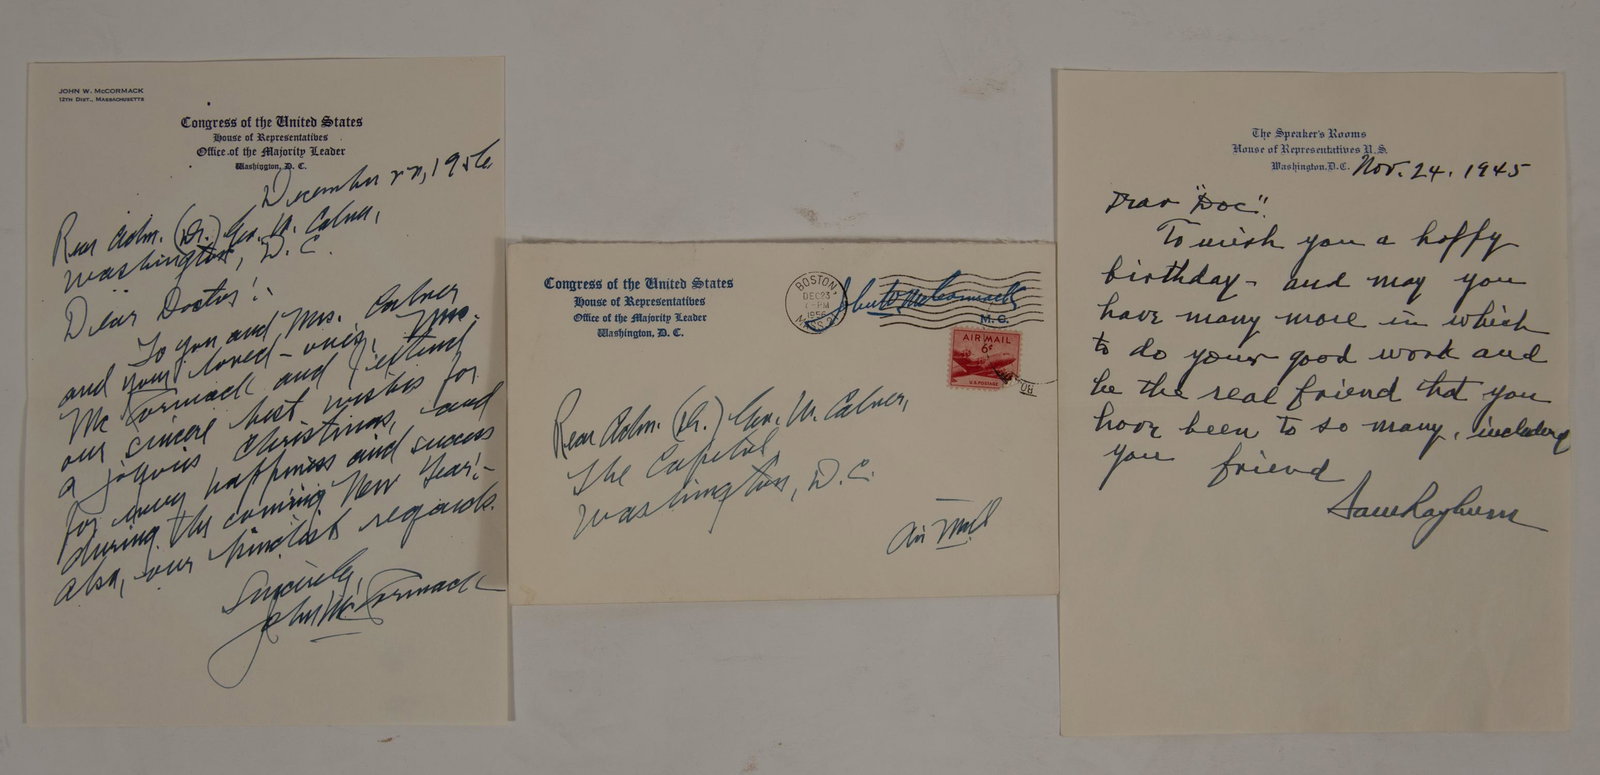 JOHN W. McCORMACK
12TH DIST., MASSACHUSETTS
Congress of the United States
House of Representatives
Office of the Majority Leader
Washington, D. C.
December 22, 1956
Rear Adm. (Dr.) Geo. W. Calver,
Washington, D. C.
Dear Doctor:
To you and Mrs. Calver
and your loved-ones, Mrs.
McCormack and I extend
our sincere best wishes for
a joyous Christmas, and
for every happiness and success
during the coming New Year:-
also, our kindest regards.
Sincerely,
John W. McCormack
Congress of the United States
House of Representatives
Office of the Majority Leader
Washington, D. C.
BOSTON,
DEC 23
PM
1956
MASS.
John W. McCormack
M. C.
AIR MAIL
6¢
U.S. POSTAGE
Rear Adm. (Dr.) Geo. W. Calver,
The Capitol,
Washington, D. C.
Air Mail
The Speaker's Rooms
House of Representatives U.S.
Washington, D.C.
Nov. 24. 1945
Dear "Doc".
To wish you a happy
birthday - and may you
have many more in which
to do your good work and
be the real friend that you
have been to so many, including
you friend
Sam Rayburn